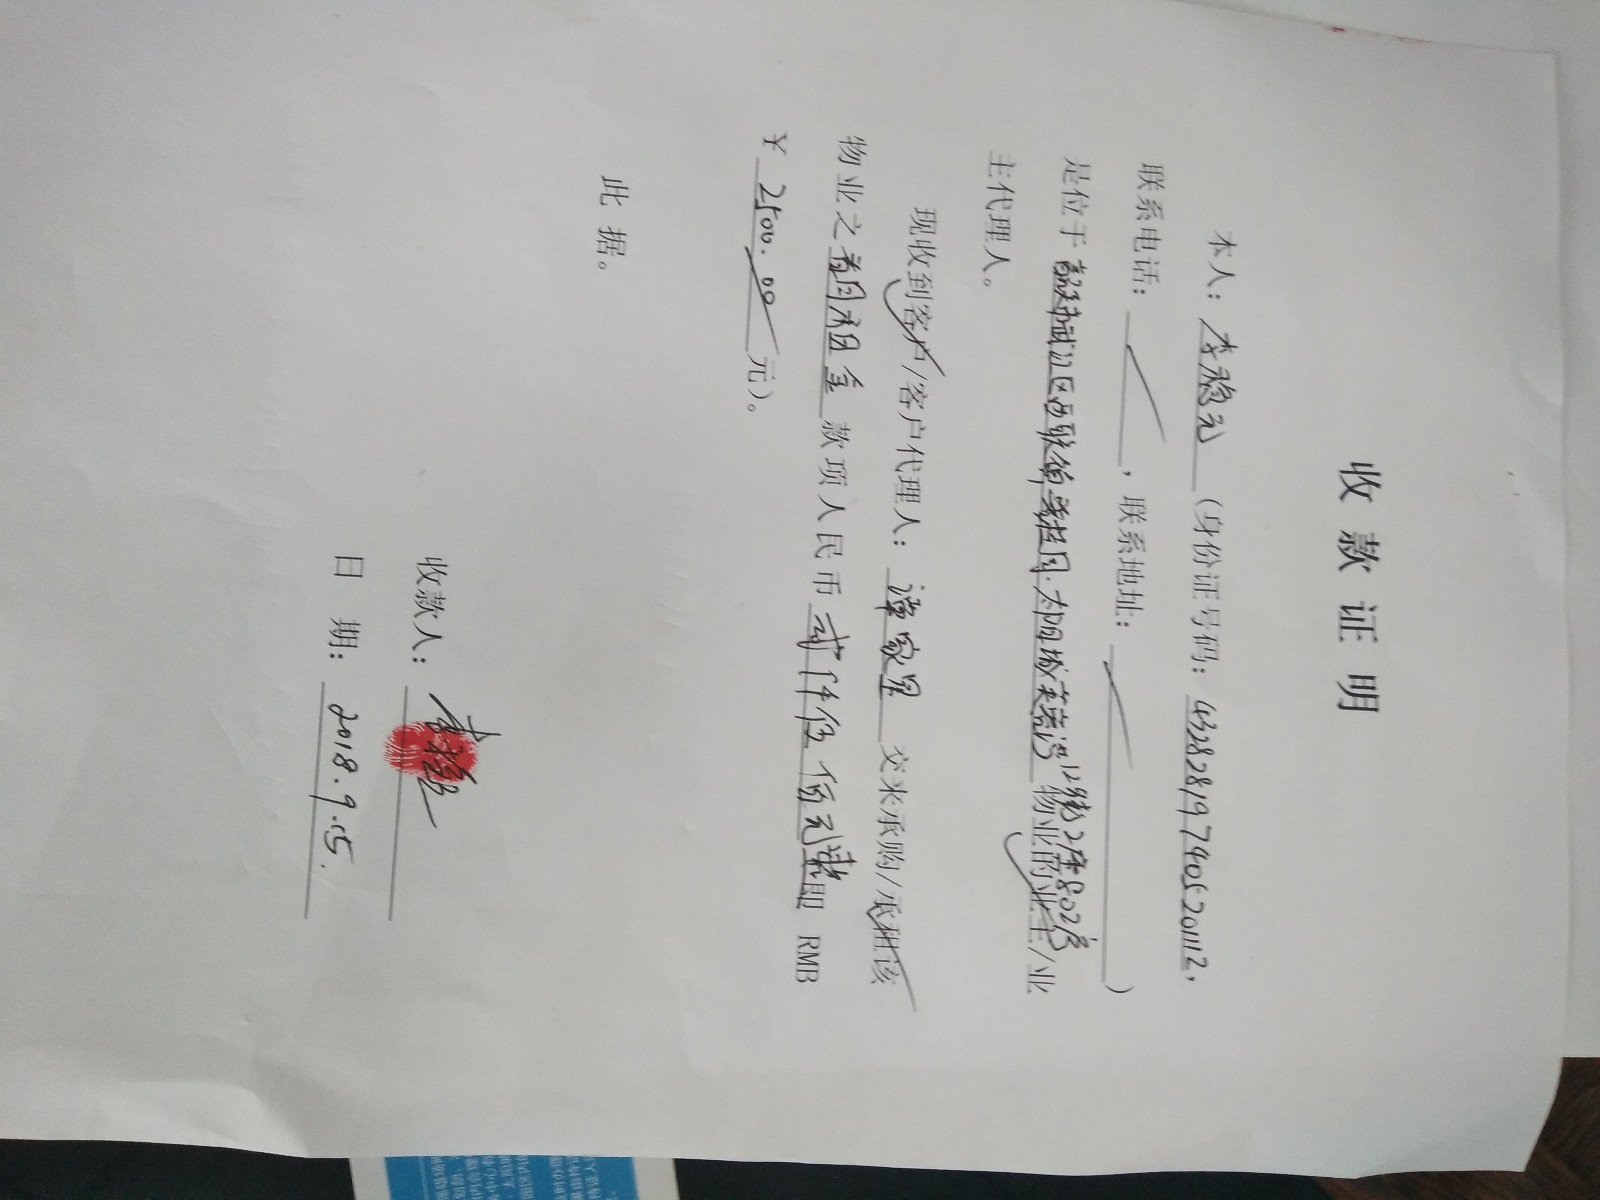 收款证明
本人：李 元（身份证号码：432828197405201112，
联系电话： ，联系地址： ）
是位于 武江区西联镇碧桂园太阳城芙蓉湾12街2座802房物业的业主/业
主代理人。
现收到客户/客户代理人：谭家 交来承购/承租该
物业之首月租金款项人民币贰仟伍佰元整即 RMB
￥2500.00元）。
此据。
收款人：李
日 期：2018.9.15.